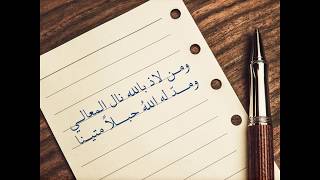 ومن لاذ بالله نال المعالي
ومدّ له اللهُ حبلاً متينا